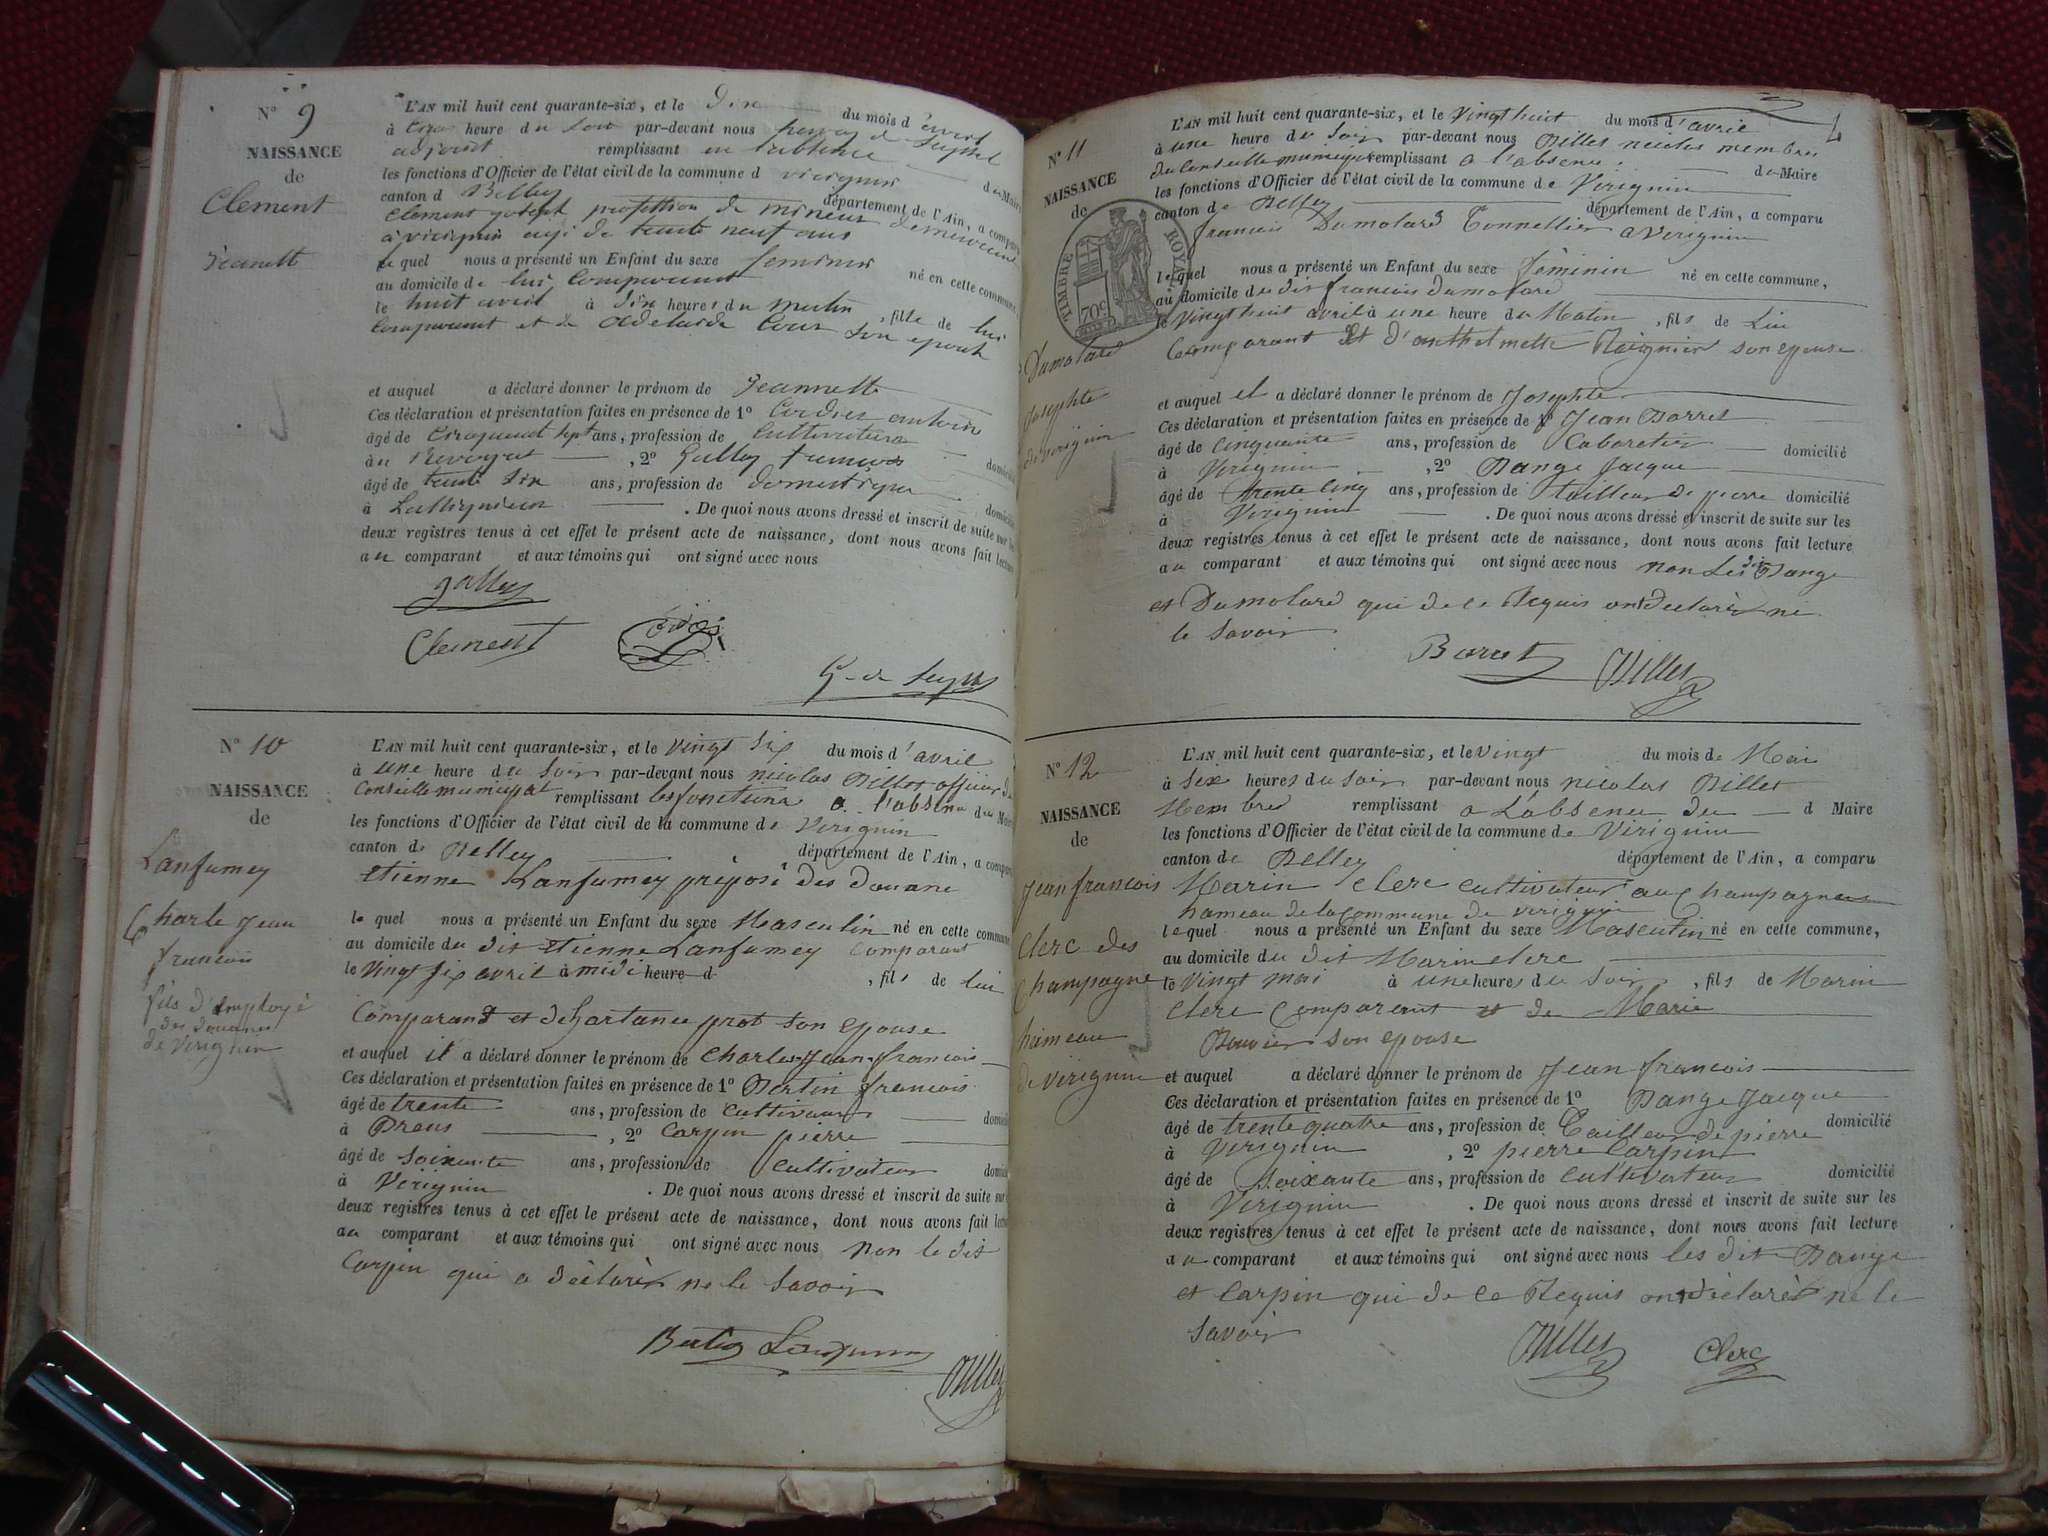 N° 9
NAISSANCE
de
Clement
Jeannett
L'AN mil huit cent quarante-six, et le Dix du mois d'avril
à heure du soir par-devant nous de Seyssel
adjoint remplissant en l'absence du Maire
les fonctions d'Officier de l'état civil de la commune d virignin
canton d Belley département de l'Ain, a comparu
Clement profession de mineur demeurant
à virignin agé de trente neuf ans
le quel nous a présenté un Enfant du sexe feminin né en cette commune,
au domicile de lui Comparant
le huit avril à dix heures du matin, fille de lui
Comparant et de adelaide Cour son epouse
et auquel a déclaré donner le prénom de Jeannette
Ces déclaration et présentation faites en présence de 1°
âgé de Cinquant sept ans, profession de Cultivateur
au , 2° Galley francois domicilié
âgé de trente six ans, profession de domestique domicilié
à . De quoi nous avons dressé et inscrit de suite sur les
deux registres tenus à cet effet le présent acte de naissance, dont nous avons fait lecture
au comparant et aux témoins qui ont signé avec nous
galley
Clement
G. de Seyssel
N° 10
NAISSANCE
de
Lanfumey
Charle Jean
francois
fils d'Employé
des douanes
de Virignin
L'AN mil huit cent quarante-six, et le vingt six du mois d'avril
à une heure du soir par-devant nous nicolas Billet officier du
Conseille municipat remplissant les fonctions a l'absence du Maire
les fonctions d'Officier de l'état civil de la commune de Virignin
canton de Belley département de l'Ain, a comparu
Etienne Lanfumey préposé des douane
le quel nous a présenté un Enfant du sexe Masculin né en cette commune
au domicile du dit Etienne Lanfumey comparant
le vingt six avril à midi heure d , fils de lui
Comparant et de hortance prot son epouse
et auquel il a déclaré donner le prénom de Charles Jean francois
Ces déclaration et présentation faites en présence de 1° Bertin francois
âgé de trente ans, profession de Cultivateur domicilié
à Brens , 2° Carpin pierre
âgé de soixante ans, profession de Cultivateur domicilié
à Virignin . De quoi nous avons dressé et inscrit de suite sur
deux registres tenus à cet effet le présent acte de naissance, dont nous avons fait lecture
au comparant et aux témoins qui ont signé avec nous non le dit
Carpin qui a déclaré ne le savoir
Bertin Lanfumey
Billet
N° 11
NAISSANCE
de
TIMBRE ROYAL
70c
Dumolard
Josephte
de virignin
L'AN mil huit cent quarante-six, et le vingt huit du mois d'avril
à une heure du soir par-devant nous Billet nicolas membre
du Conseille municipat remplissant a l'absence du Maire
les fonctions d'Officier de l'état civil de la commune de Virignin
canton de Belley département de l'Ain, a comparu
francois Dumolard Tonnellier a Virignin
le quel nous a présenté un Enfant du sexe féminin né en cette commune,
au domicile du dit francois Dumolard
le vingt huit avril à une heure du Matin, fils de Lui
Comparant Et d'anthelmette Reignier son epouse
et auquel il a déclaré donner le prénom de Josephte
Ces déclaration et présentation faites en présence de 1° Jean Barret
âgé de cinquante ans, profession de Cabaretier domicilié
à Virignin , 2° Bange Jacque
âgé de trente cinq ans, profession de tailleur de pierre domicilié
à Virignin . De quoi nous avons dressé et inscrit de suite sur les
deux registres tenus à cet effet le présent acte de naissance, dont nous avons fait lecture
au comparant et aux témoins qui ont signé avec nous non Les dit Bange
et Dumolard qui de ce Requis ont déclaré ne
le savoir
Barret Billet
N° 12
NAISSANCE
de
Jean francois
Clerc des
Champagne
hameau
de virignin
L'AN mil huit cent quarante-six, et le vingt du mois de Mai
à six heures du soir par-devant nous nicolas Billet
Membres remplissant a L'absence du d Maire
les fonctions d'Officier de l'état civil de la commune de Virignin
canton de Belley département de l'Ain, a comparu
Marin Clerc cultivateur au Champagne
hameau de la commune de virignin
le quel nous a présenté un Enfant du sexe Masculin né en cette commune,
au domicile du dit Marin clerc
le vingt mai à une heures du soir, fils de Marin
clerc Comparant et de Marie
Bouvier son epouse
et auquel a déclaré donner le prénom de Jean francois
Ces déclaration et présentation faites en présence de 1° Bange Jacque
âgé de trente quatre ans, profession de Tailleur de pierre domicilié
à Virignin , 2° pierre Carpin
âgé de soixante ans, profession de cultivateur domicilié
à Virignin . De quoi nous avons dressé et inscrit de suite sur les
deux registres tenus à cet effet le présent acte de naissance, dont nous avons fait lecture
au comparant et aux témoins qui ont signé avec nous les dit Bange
et Carpin qui de ce Requis ont déclaré ne le
savoir
Billet Clerc